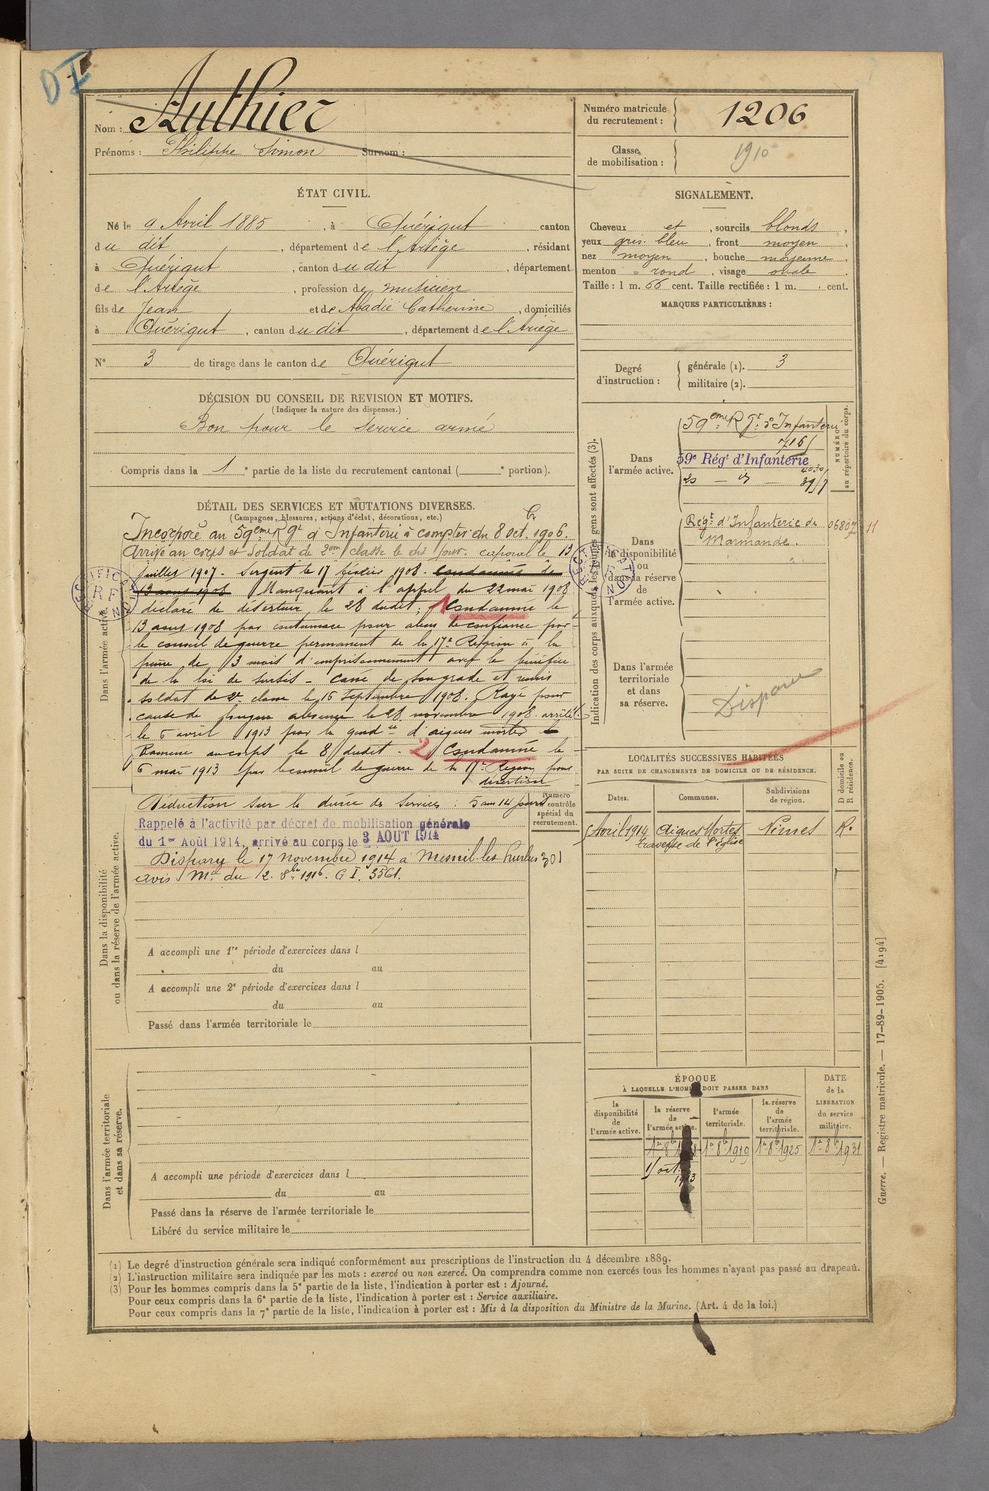 DI
Nom : Authier
Prénoms : Philippe Simon Surnom :
Numéro matricule du recrutement : 1206
Classe de mobilisation : 1910
ÉTAT CIVIL.
Né le 9 Avril 1885, à Quérigut canton
du dit, département de l'Ariège, résidant
à Quérigut, canton du dit, département
de l'Ariège, profession de musicien
fils de Jean et de Abadie Catherine, domiciliés
à Quérigut, canton du dit, département de l'Ariège
N° 3 de tirage dans le canton de Quérigut
DÉCISION DU CONSEIL DE REVISION ET MOTIFS.
(Indiquer la nature des dispenses.)
Bon pour le service armé
Compris dans la 1e partie de la liste du recrutement cantonal ( e portion).
SIGNALEMENT.
Cheveux et, sourcils blonds,
yeux gris bleu, front moyen,
nez moyen, bouche moyenne,
menton rond, visage ovale
Taille : 1 m. 66 cent. Taille rectifiée : 1 m. cent.
MARQUES PARTICULIÈRES :
Degré d'instruction : générale (1). 3
militaire (2).
DÉTAIL DES SERVICES ET MUTATIONS DIVERSES.
(Campagnes, blessures, actions d'éclat, décorations, etc.)
Dans l'armée active.
Incorporé au 59eme Rgt d'Infanterie à compter du 8 oct. 1906.
Arrivé au corps et soldat de 2me classe le dit jour. caporal le 13
juillet 1907. Sergent le 17 février 1908. Condamné le
13 aout 1908 Manquant à l'appel du 22 mai 1908
déclaré de déserteur le 28 dudit. 1 Condamné le
13 aout 1908 par contumace pour abus de confiance par
le conseil de guerre permanent de la 17e Région à la
peine de 3 mois d'emprisonnement avec le bénéfice
de la loi de sursis. Cassé de son grade et remis
soldat de 2e classe le 16 Septembre 1908. Rayé pour
cause de longue absence le 28 novembre 1908. arrêté
le 5 avril 1913 par la gendie d'aigues mortes
Ramené au corps le 8 dudit. 2 Condamné le
6 mai 1913 par le conseil de guerre de la 17e Région pour
désertion
RECTIFICATION RF
Dans la disponibilité ou dans la réserve de l'armée active.
Déduction sur la durée des Services : 5 ans 14 jours
Rappelé à l'activité par décret de mobilisation générale
du 1er Août 1914, arrivé au corps le 3 AOUT 1914
Disparu le 17 novembre 1914 à Mesnil-les-Hurlus
avis Mel du 2. 8bre 1916. G I. 3561.
Numéro au contrôle spécial du recrutement.
301
A accompli une 1re période d'exercices dans l
du au
A accompli une 2e période d'exercices dans l
du au
Passé dans l'armée territoriale le
Dans l'armée territoriale et dans sa réserve.
A accompli une période d'exercices dans l
du au
Passé dans la réserve de l'armée territoriale le
Libéré du service militaire le
Indication des corps auxquels les jeunes gens sont affectés (3).
NUMÉRO au répertoire du corps.
Dans l'armée active.
59eme Rgt d'Infanterie
59e Régt d'Infanterie
Dans la disponibilité ou dans la réserve de l'armée active.
Régt d'Infanterie de 06807 11
Marmande.
RECTIFICATION
Dans l'armée territoriale et dans sa réserve.
Disparu
LOCALITÉS SUCCESSIVES HABITÉES
PAR SUITE DE CHANGEMENTS DE DOMICILE OU DE RÉSIDENCE.
Dates. Communes. Subdivisions de région. D domicile ou R résidence.
Avril 1914 Aigues Mortes Nîmes R.
traverse de l'église
ÉPOQUE
À LAQUELLE L'HOMME DOIT PASSER DANS
la disponibilité de l'armée active.
la réserve de l'armée active.
l'armée territoriale.
la réserve de l'armée territoriale.
DATE de la LIBÉRATION du service militaire.
1er 8bre 1919 1er 8bre 1925 1er 8bre 1931
1 oct
Guerre. — Registre matricule. — 17-89-1905. [4194]
(1) Le degré d'instruction générale sera indiqué conformément aux prescriptions de l'instruction du 4 décembre 1889.
(2) L'instruction militaire sera indiquée par les mots : exercé ou non exercé. On comprendra comme non exercés tous les hommes n'ayant pas passé au drapeau.
(3) Pour les hommes compris dans la 5e partie de la liste, l'indication à porter est : Ajourné.
Pour ceux compris dans la 6e partie de la liste, l'indication à porter est : Service auxiliaire.
Pour ceux compris dans la 7e partie de la liste, l'indication à porter est : Mis à la disposition du Ministre de la Marine. (Art. 4 de la loi.)